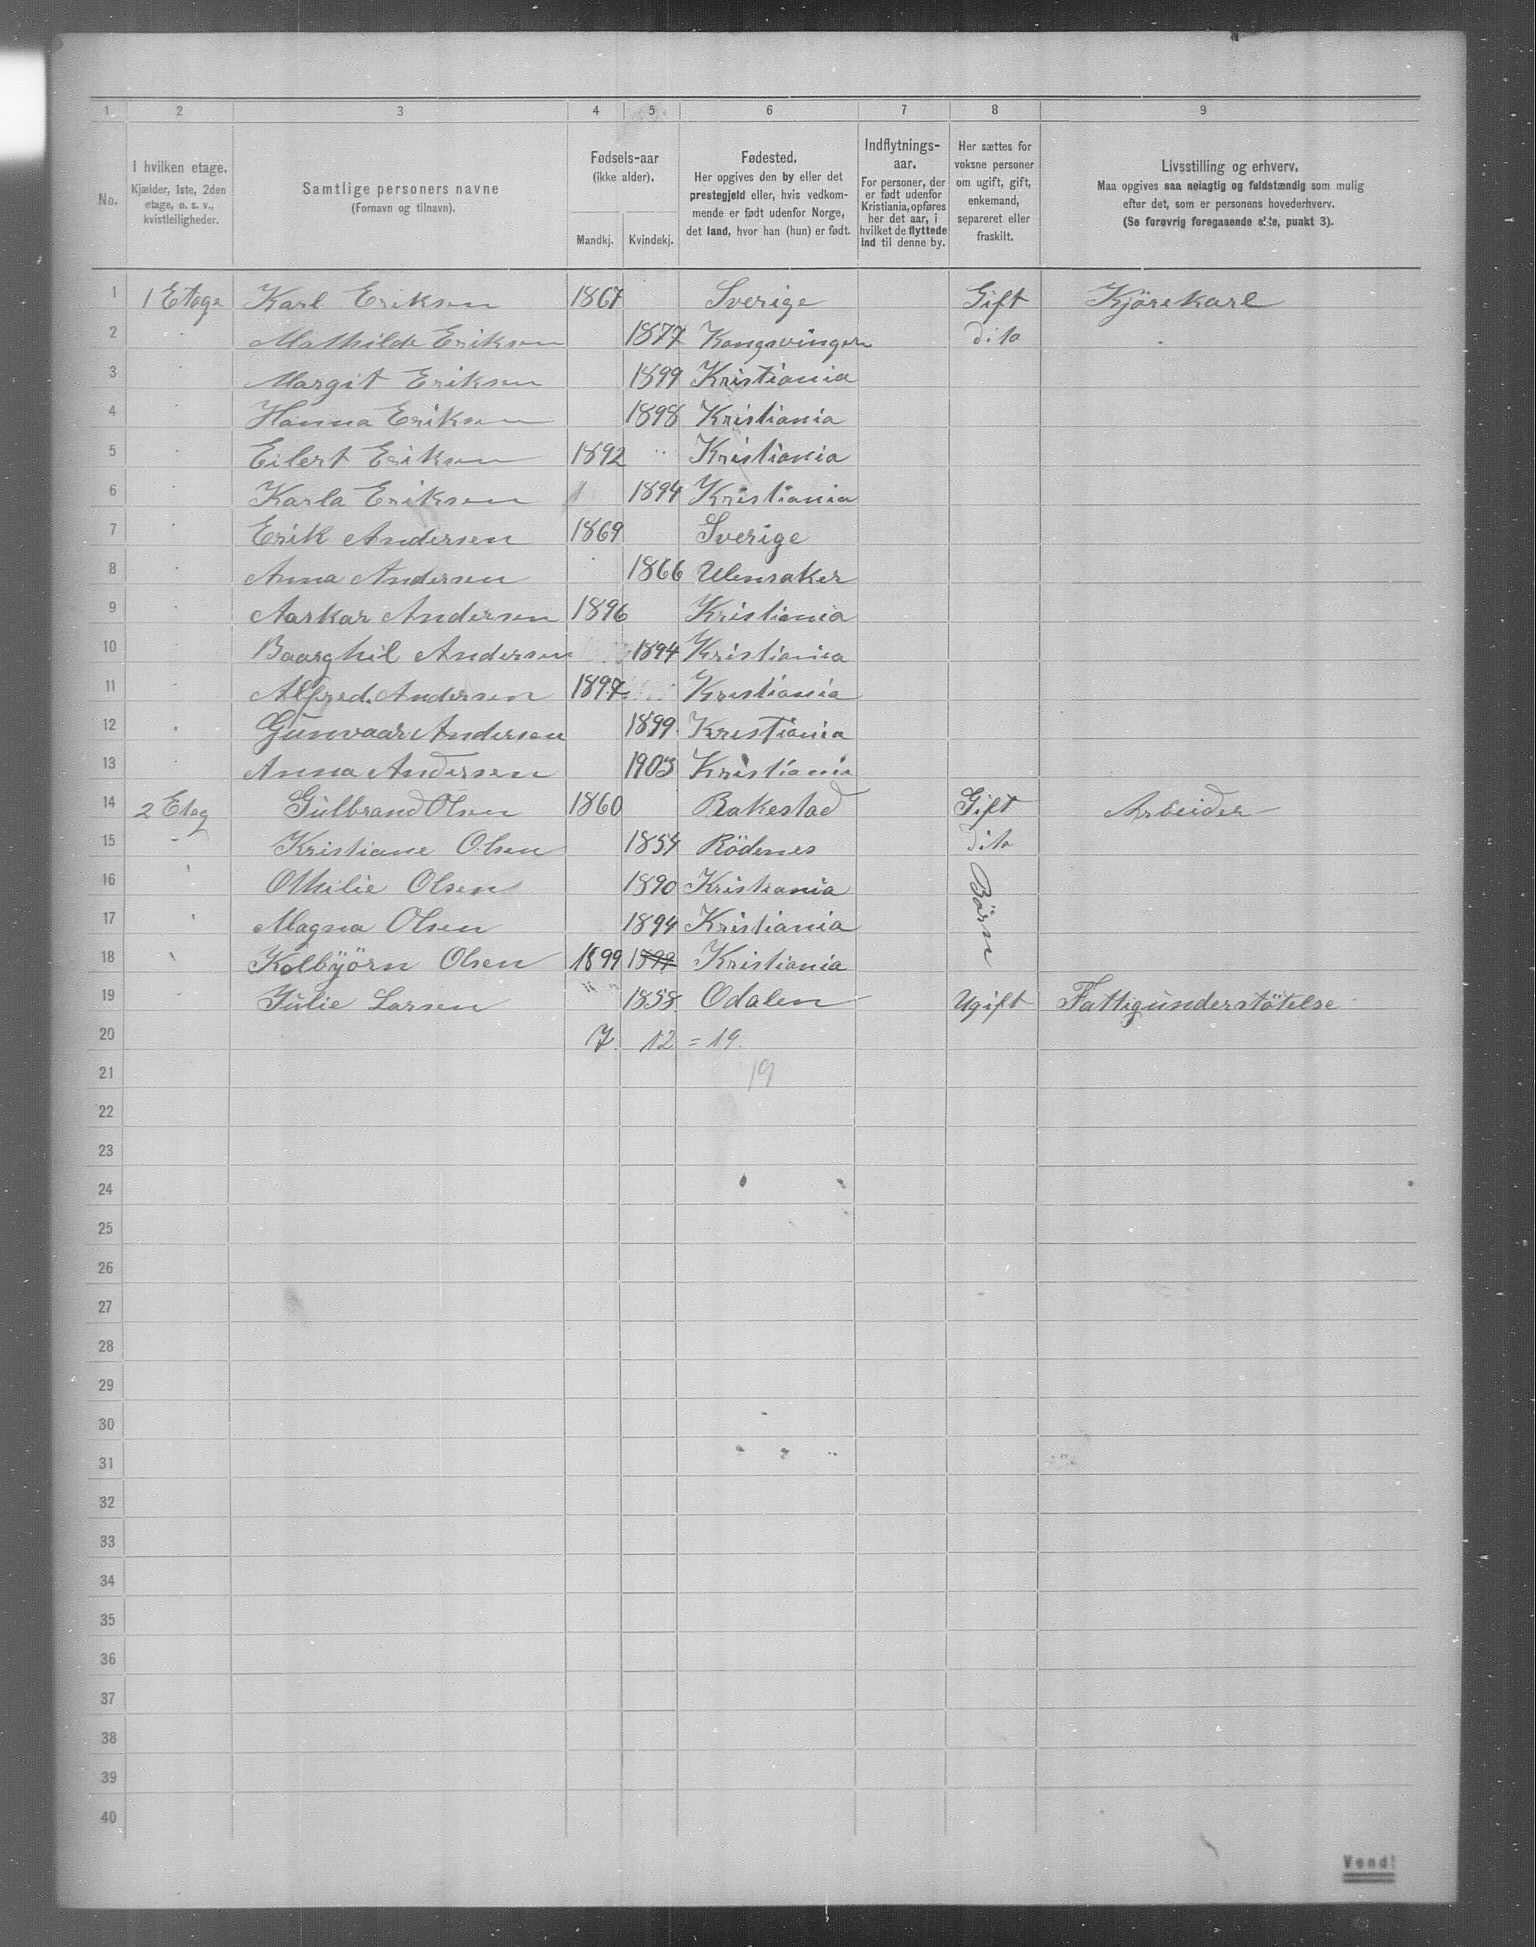 1 2 3 4 5 6 7 8 9
No. I hvilken etage. Kjælder, 1ste, 2den etage, o. s. v., kvistleiligheder. Samtlige personers navne (Fornavn og tilnavn). Fødsels-aar (ikke alder). Mandkj. Kvindekj. Fødested. Her opgives den by eller det prestegjeld eller, hvis vedkommende er født udenfor Norge, det land, hvor han (hun) er født. Indflytnings-aar. For personer, der er født udenfor Kristiania, opføres her det aar, i hvilket de flyttede ind til denne by. Her sættes for voksne personer om ugift, gift, enkemand, separeret eller fraskilt. Livsstilling og erhverv. Maa opgives saa nøiagtig og fuldstændig som mulig efter det, som er personens hovederhverv. (Se forøvrig foregaaende side, punkt 3).
1 1 Etage Karl Eriksen 1867 Sverige Gift Kjörekarl
2 Mathilde Eriksen 1877 Kongsvingen dito
3 Margit Eriksen 1899 Kristiania
4 Hanna Eriksen 1898 Kristiania
5 Eilert Eriksen 1892 " Kristiania
6 Karla Eriksen 1894 Kristiania
7 Erik Andersen 1869 Sverige
8 Anna Andersen 1866 Ulensaker
9 Aaskar Andersen 1896 Kristiania
10 Baarghil Andersen 1894 Kristiania
11 Alfred Andersen 1897 Kristiania
12 Gunvaar Andersen 1899 Kristiania
13 Anna Andersen 1903 Kristiania
14 2 Etag Gulbrand Olsen 1860 Bakestad Gift Arbeider
15 Kristiane Olsen 1854 Rödenes dito
16 Othilie Olsen 1890 Kristiania Börn
17 Magna Olsen 1894 Kristiania
18 Kolbjörn Olsen 1899 1899 Kristiania
19 Julie Larsen " 1858 Odalen Ugift Fattigunderstötelse
20 7 12 = 19
21 19
22
23
24
25
26
27
28
29
30
31
32
33
34
35
36
37
38
39
40
Vend!